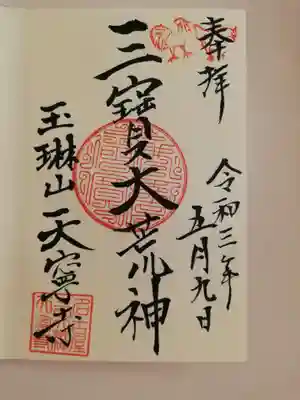 奉拝
令和三年
五月九日
三寳大荒神
玉琳山天寧寺